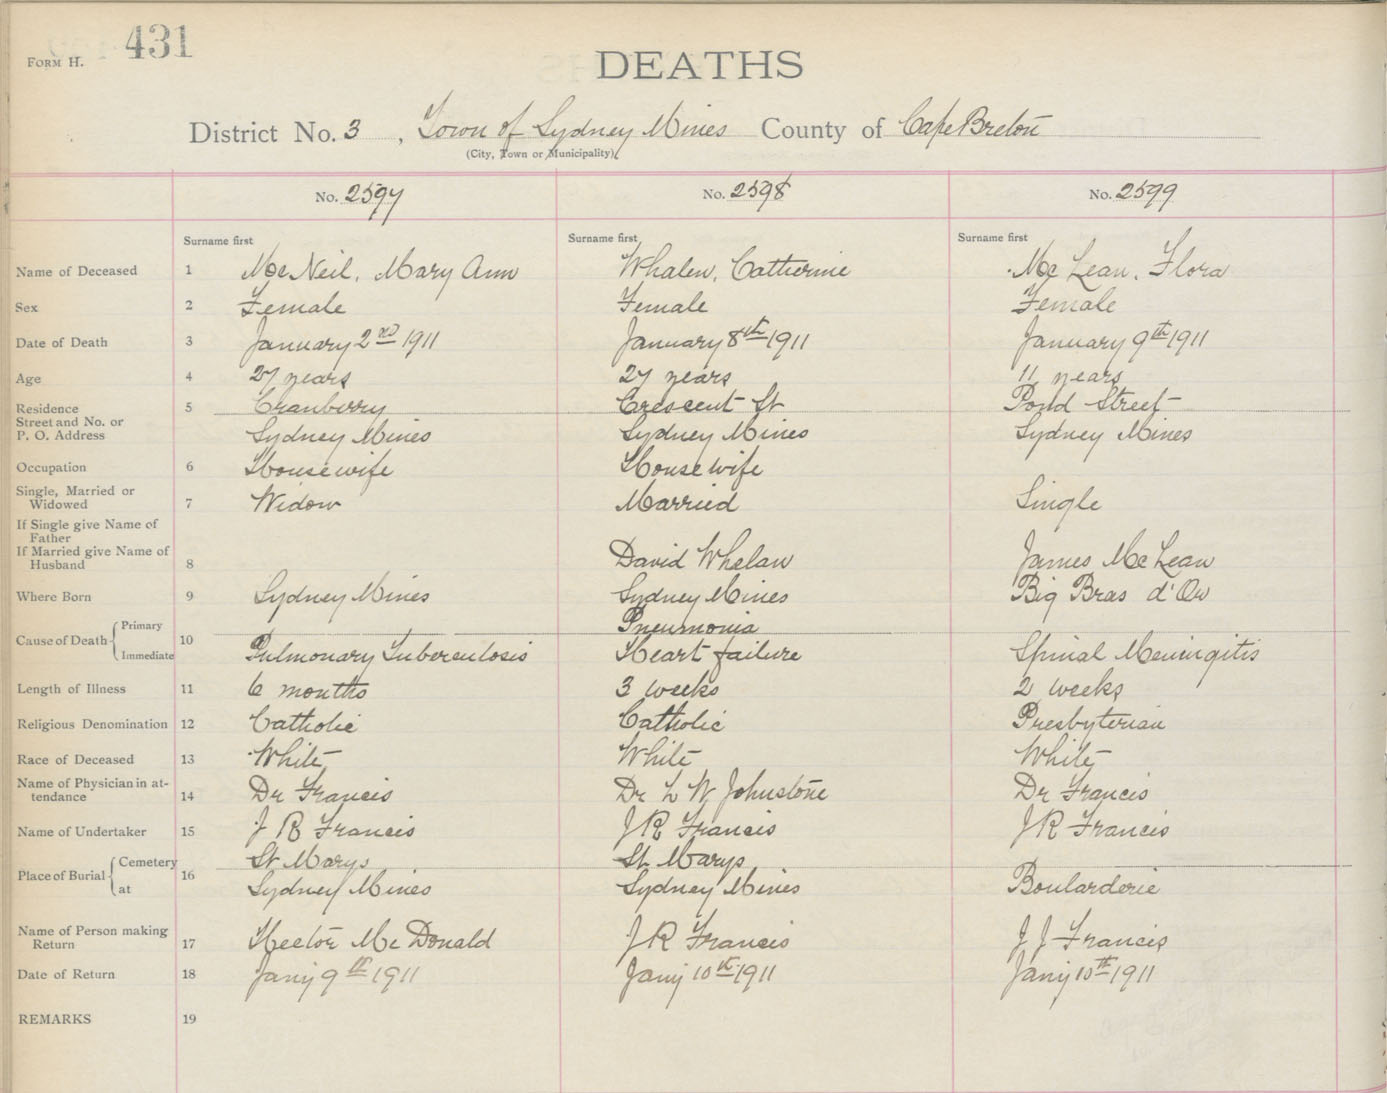 431
FORM H.
DEATHS
District No. 3, Town of Sydney Mines County of Cape Breton
(City, Town or Municipality)
No. 2597 No. 2598 No. 2599
Surname first Surname first Surname first
Name of Deceased 1 McNeil, Mary Ann Whalen, Catherine McLean, Flora
Sex 2 Female Female Female
Date of Death 3 January 2nd 1911 January 8th 1911 January 9th 1911
Age 4 27 years 27 years 11 years
Residence 5 Cranberry Crescent St Pond Street
Street and No. or
P. O. Address Sydney Mines Sydney Mines Sydney Mines
Occupation 6 Housewife Housewife
Single, Married or
Widowed 7 Widow Married Single
If Single give Name of
Father
If Married give Name of
Husband 8 David Whelan James McLean
Where Born 9 Sydney Mines Sydney Mines Big Bras d'Or
Cause of Death Primary 10 Pneumonia
Immediate Pulmonary Tuberculosis Heart failure Spinal Meningitis
Length of Illness 11 6 months 3 weeks 2 weeks
Religious Denomination 12 Catholic Catholic Presbyterian
Race of Deceased 13 White White White
Name of Physician in at-
tendance 14 Dr Francis Dr L W Johnstone Dr Francis
Name of Undertaker 15 J R Francis J R Francis J R Francis
Place of Burial Cemetery 16 St Marys St Marys
at Sydney Mines Sydney Mines Boularderie
Name of Person making
Return 17 Hector McDonald J R Francis J J Francis
Date of Return 18 Jany 9th 1911 Jany 10th 1911 Jany 10th 1911
REMARKS 19